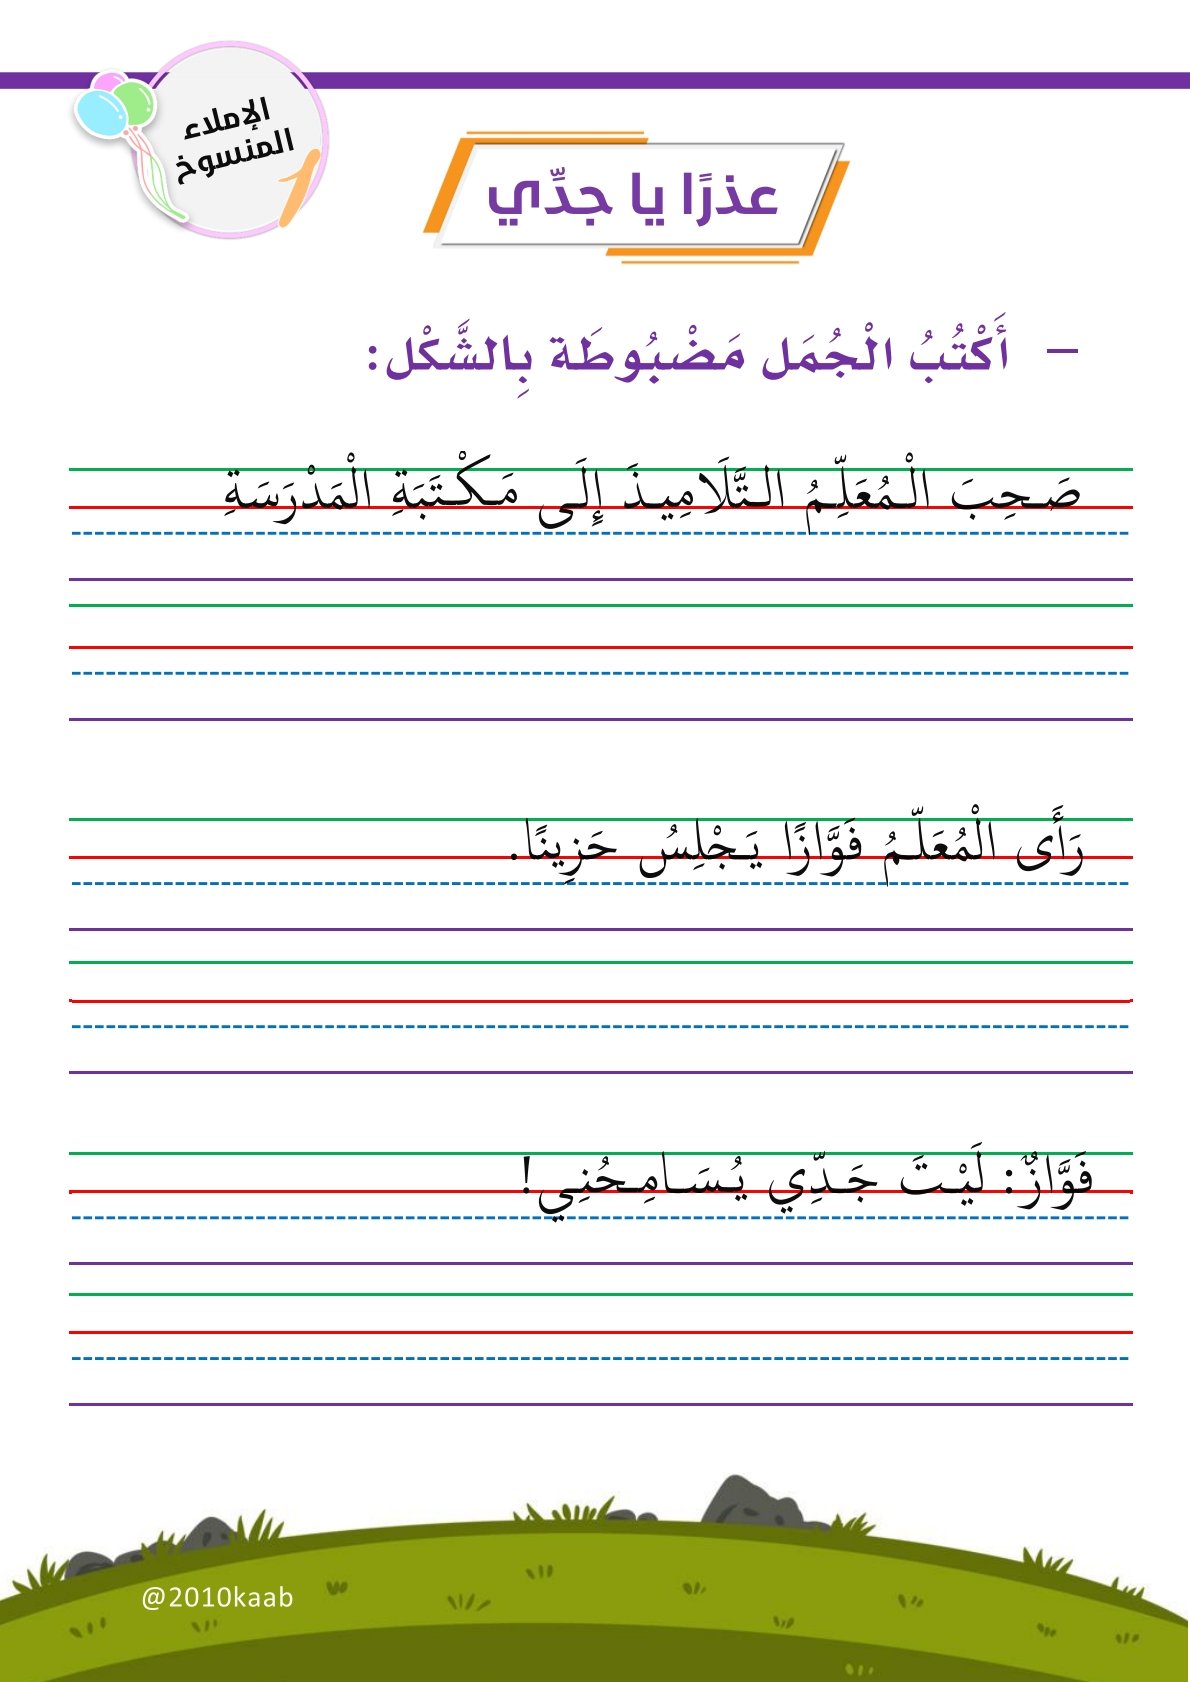 الإملاء
المنسوخ
1
عذرًا يا جدِّي
– أَكْتُبُ الْجُمَل مَضْبُوطَة بِالشَّكْل:
صَـحِبَ الْـمُعَلِّـمُ الـتَّلَامِيـذَ إِلَـى مَـكْـتَبَةِ الْمَدْرَسَةِ
رَأَى الْمُعَلّـمُ فَوَّازًا يَـجْلِسُ حَزِينًا.
فَوَّازٌ: لَيْـتَ جَـدِّي يُـسَـامِـحُنِـي!
@2010kaab